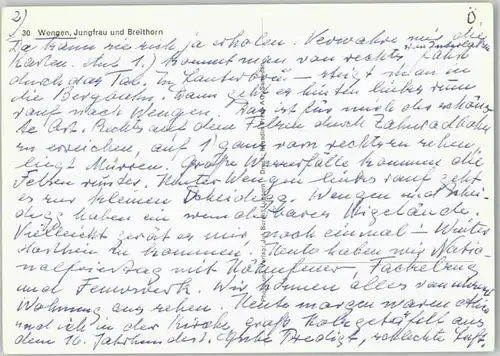 2)
Ö
30 Wengen, Jungfrau und Breithorn
Da kann sie sich ja erholen. Verwahre mir die
Karten. Auf 1.) kommt man von rechts
durch das Tal. In Lauterbru- steigt man in
die Bergbahn. Dann geht es hinten links rum
rauf nach Wengen. Das ist für mich der schön-
ste Ort. Rechts auf dem Felsen durch Zahnradbahn
zu erreichen, auf 1 ganz vorn rechts zu sehen,
liegt Mürren. Große Wasserfälle kommen die
Felsen runter. Hinter Wengen links rauf geht
es zur kleinen Scheidegg. Wengen und Schei-
degg haben ein wunderbares Skigelände.
Vielleicht gerät es mir noch einmal - Winter
dorthin zu kommen. Heute haben wir Natio-
nalfeiertag mit Höhenfeuer, Fackelzug
und Feuerwerk. Wir können alles von
Wohnung aus sehen. Heute morgen waren
und ich in der Kirche, groß Holzgetäfelt aus
dem 16. Jahrhundert. Gute Predigt, schlechte Luft.